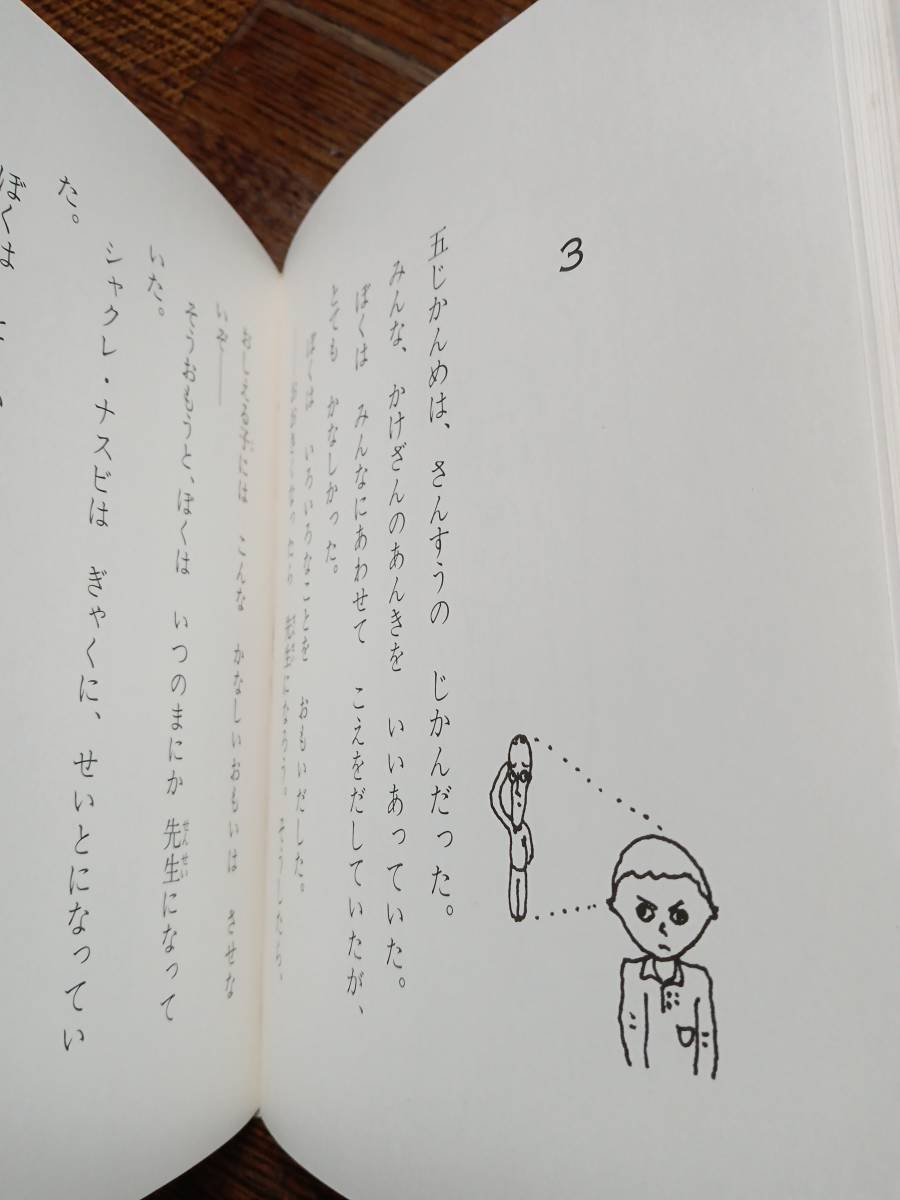 3
五じかんめは、さんすうの じかんだった。
みんな、かけざんのあんきを いいあっていた。
ぼくは みんなにあわせて こえをだしていたが、
とても かなしかった。
ぼくは いろいろなことを おもいだした。
先生になろう。そうしたら、
おしえる子には こんな かなしいおもいは させな
いぞ――
そうおもうと、ぼくは いつのまにか 先生になって
せんせい
いた。
シャクレ・ナスビは ぎゃくに、せいとになってい
た。
ぼくは